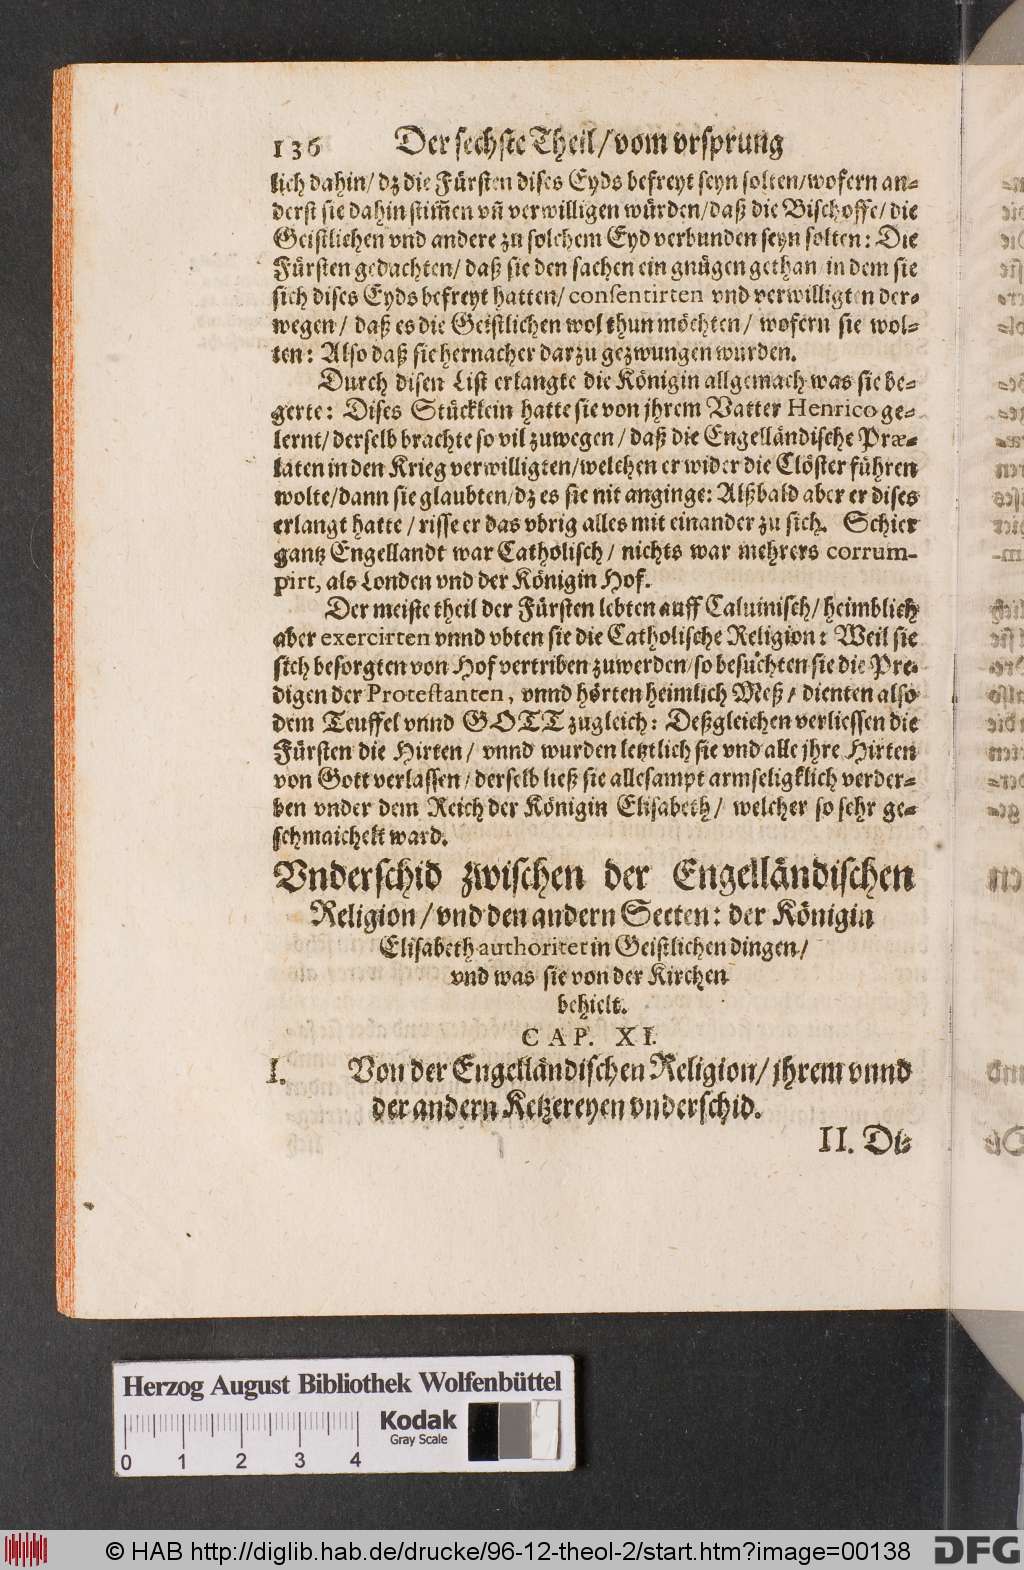 136 Der sechste Theil / vom vrsprung
lich dahin / dz die Fürsten dises Eyds befreyt seyn solten / wofern an-
derst sie dahin stim̃en vñ verwilligen würden / daß die Bischoffe / die
Geistlichen vnd andere zu solchem Eyd verbunden seyn solten: Die
Fürsten gedachten / daß sie den sachen ein gnügen gethan / in dem sie
sich dises Eyds befreyt hatten / consentirten vnd verwilligten der-
wegen / daß es die Geistlichen wol thun möchten / wofern sie wol-
ten: Also daß sie hernacher darzu gezwungen wurden.
Durch disen List erlangte die Königin allgemach was sie be-
gerte: Dises Stücklein hatte sie von jhrem Vatter Henrico ge-
lernt / derselb brachte so vil zuwegen / daß die Engelländische Præ-
laten in den Krieg verwilligten / welchen er wider die Clöster führen
wolte / dann sie glaubten / dz es sie nit anginge: Alßbald aber er dises
erlangt hatte / risse er das vbrig alles mit einander zu sich. Schier
gantz Engellandt war Catholisch / nichts war mehrers corrum-
pirt, als Londen vnd der Königin Hof.
Der meiste theil der Fürsten lebten auff Caluinisch / heimblich
aber exercirten vnnd vbten sie die Catholische Religion: Weil sie
sich besorgten von Hof vertriben zuwerden / so besuchten sie die Pre-
digen der Protestanten, vnnd hörten heimlich Meß / dienten also
dem Teuffel vnnd GOTT zugleich: Deßgleichen verliessen die
Fürsten die Hirten / vnnd wurden letztlich sie vnd alle jhre Hirten
von Gott verlassen / derselb ließ sie allesampt armseligklich verder-
ben vnder dem Reich der Königin Elisabeth / welcher so sehr ge-
schmaichelt ward.
Vnderschid zwischen der Engelländischen
Religion / vnd den andern Secten: der Königin
Elisabeth authoritet in Geistlichen dingen /
vnd was sie von der Kirchen
behielt.
CAP. XI.
I. Von der Engelländischen Religion / jhrem vnnd
der andern Ketzereyen vnderschid.
II. Die
Herzog August Bibliothek Wolfenbüttel
Kodak
Gray Scale
0 1 2 3 4
© HAB http://diglib.hab.de/drucke/96-12-theol-2/start.htm?image=00138
DFG